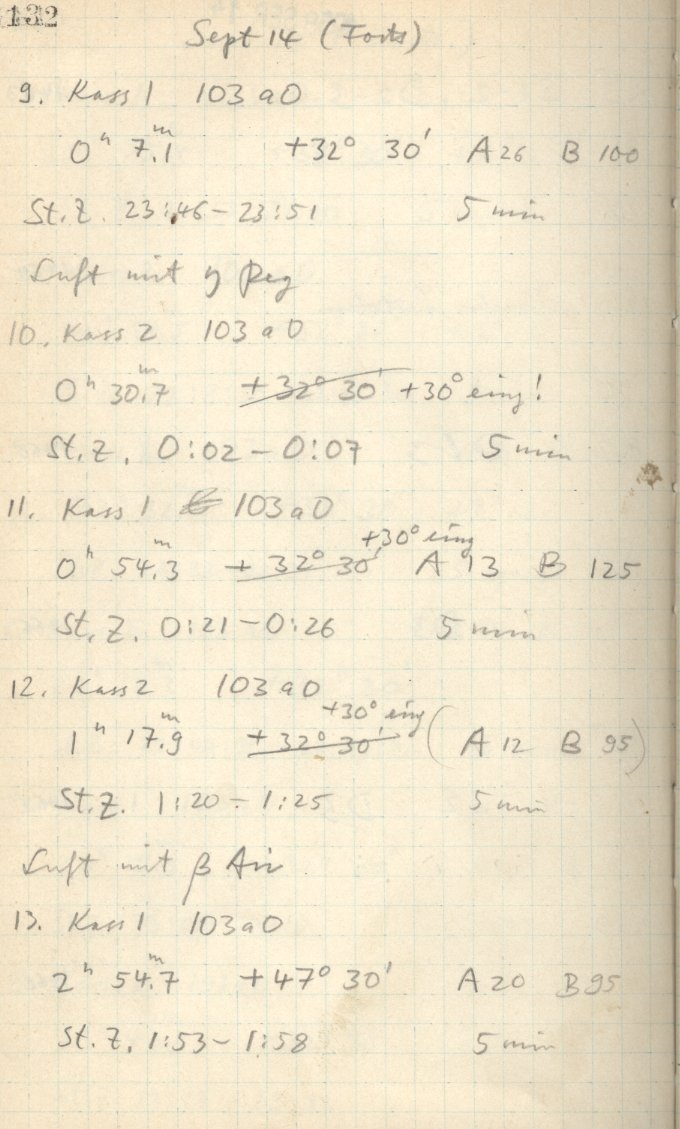 132
Sept 14 (Forts)
9. Kass 1 103 a0
0ʰ 7ᵐ.1 +32° 30' A 26 B 100
St. Z. 23:46 – 23:51 5 min
Luft mit η Peg
10. Kass 2 103 a 0
0ʰ 30ᵐ.7 +32° 30' +30° eing!
St. Z. 0:02 – 0:07 5 min
11. Kass 1 103 a 0
+30° eing
0ʰ 54ᵐ.3 +32° 30' A 13 B 125
St. Z. 0:21 – 0:26 5 min
12. Kass 2 103 a 0
+30° eing
1ʰ 17ᵐ.9 +32° 30' (A 12 B 95)
St. Z. 1:20 – 1:25 5 min
Luft mit β
13. Kass 1 103 a 0
2ʰ 54ᵐ.7 +47° 30' A 20 B 95
St. Z. 1:53 – 1:58 5 min